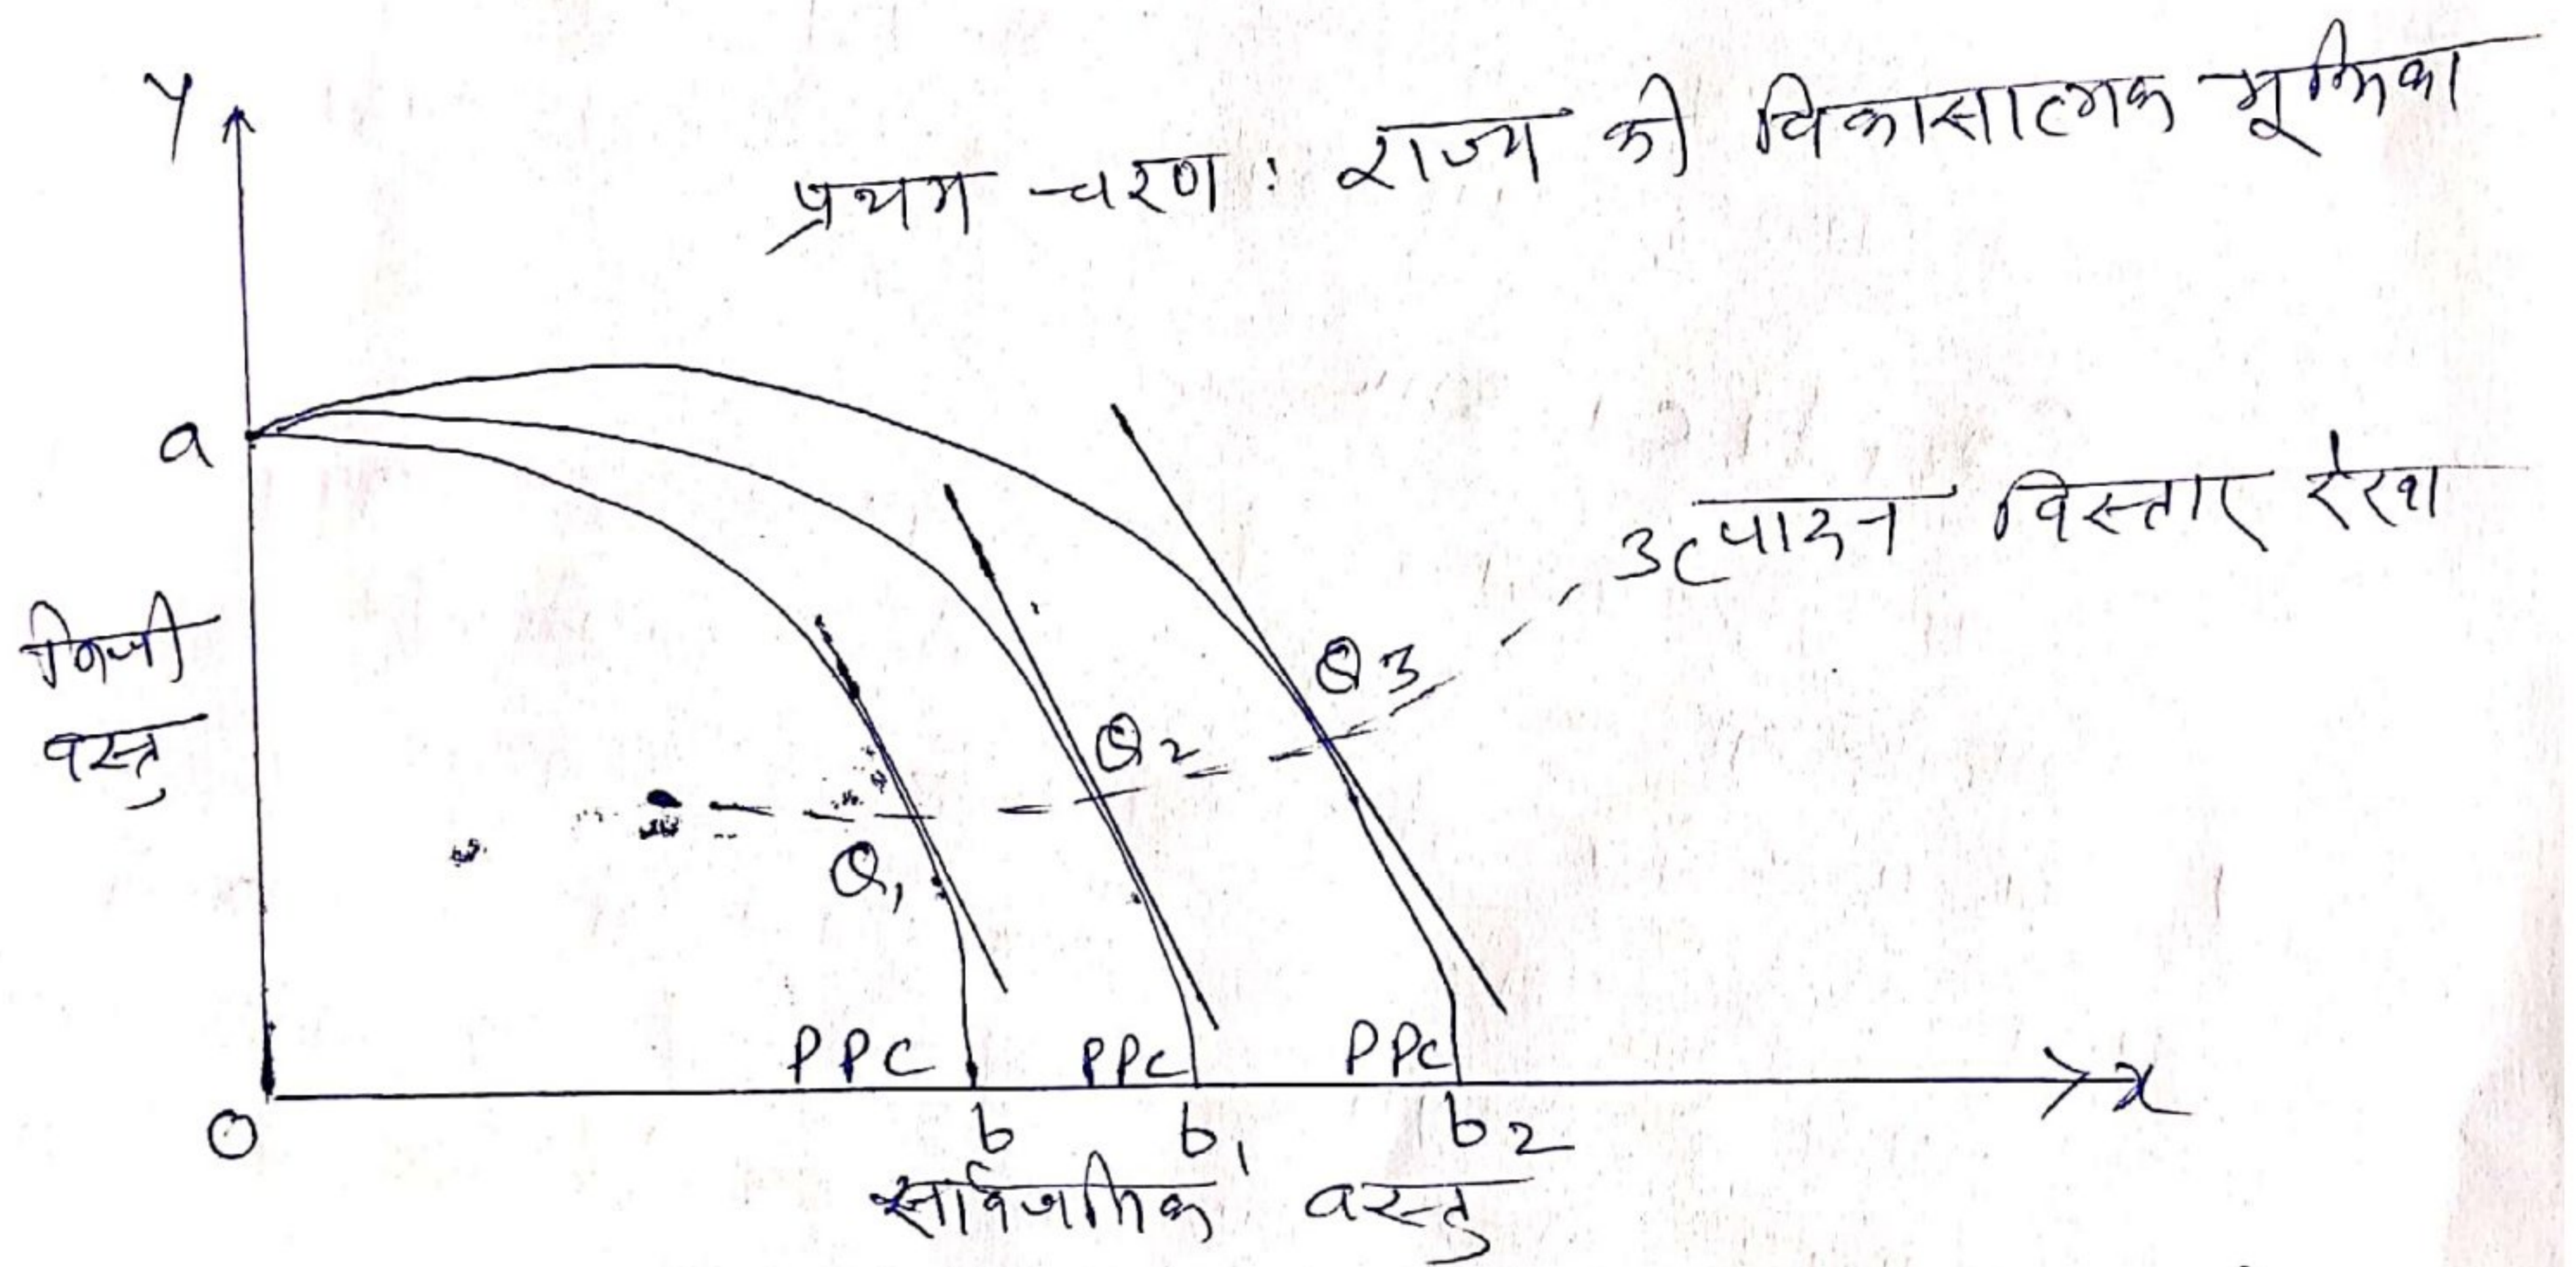 Y
प्रथम चरण : राज्य की विकासात्मक भूमिका
a
उत्पादन विस्तार रेखा
निजी
वस्तु
Q3
Q2
Q1
PPC PPC PPC
x
O b b1 b2
सार्वजनिक वस्तु